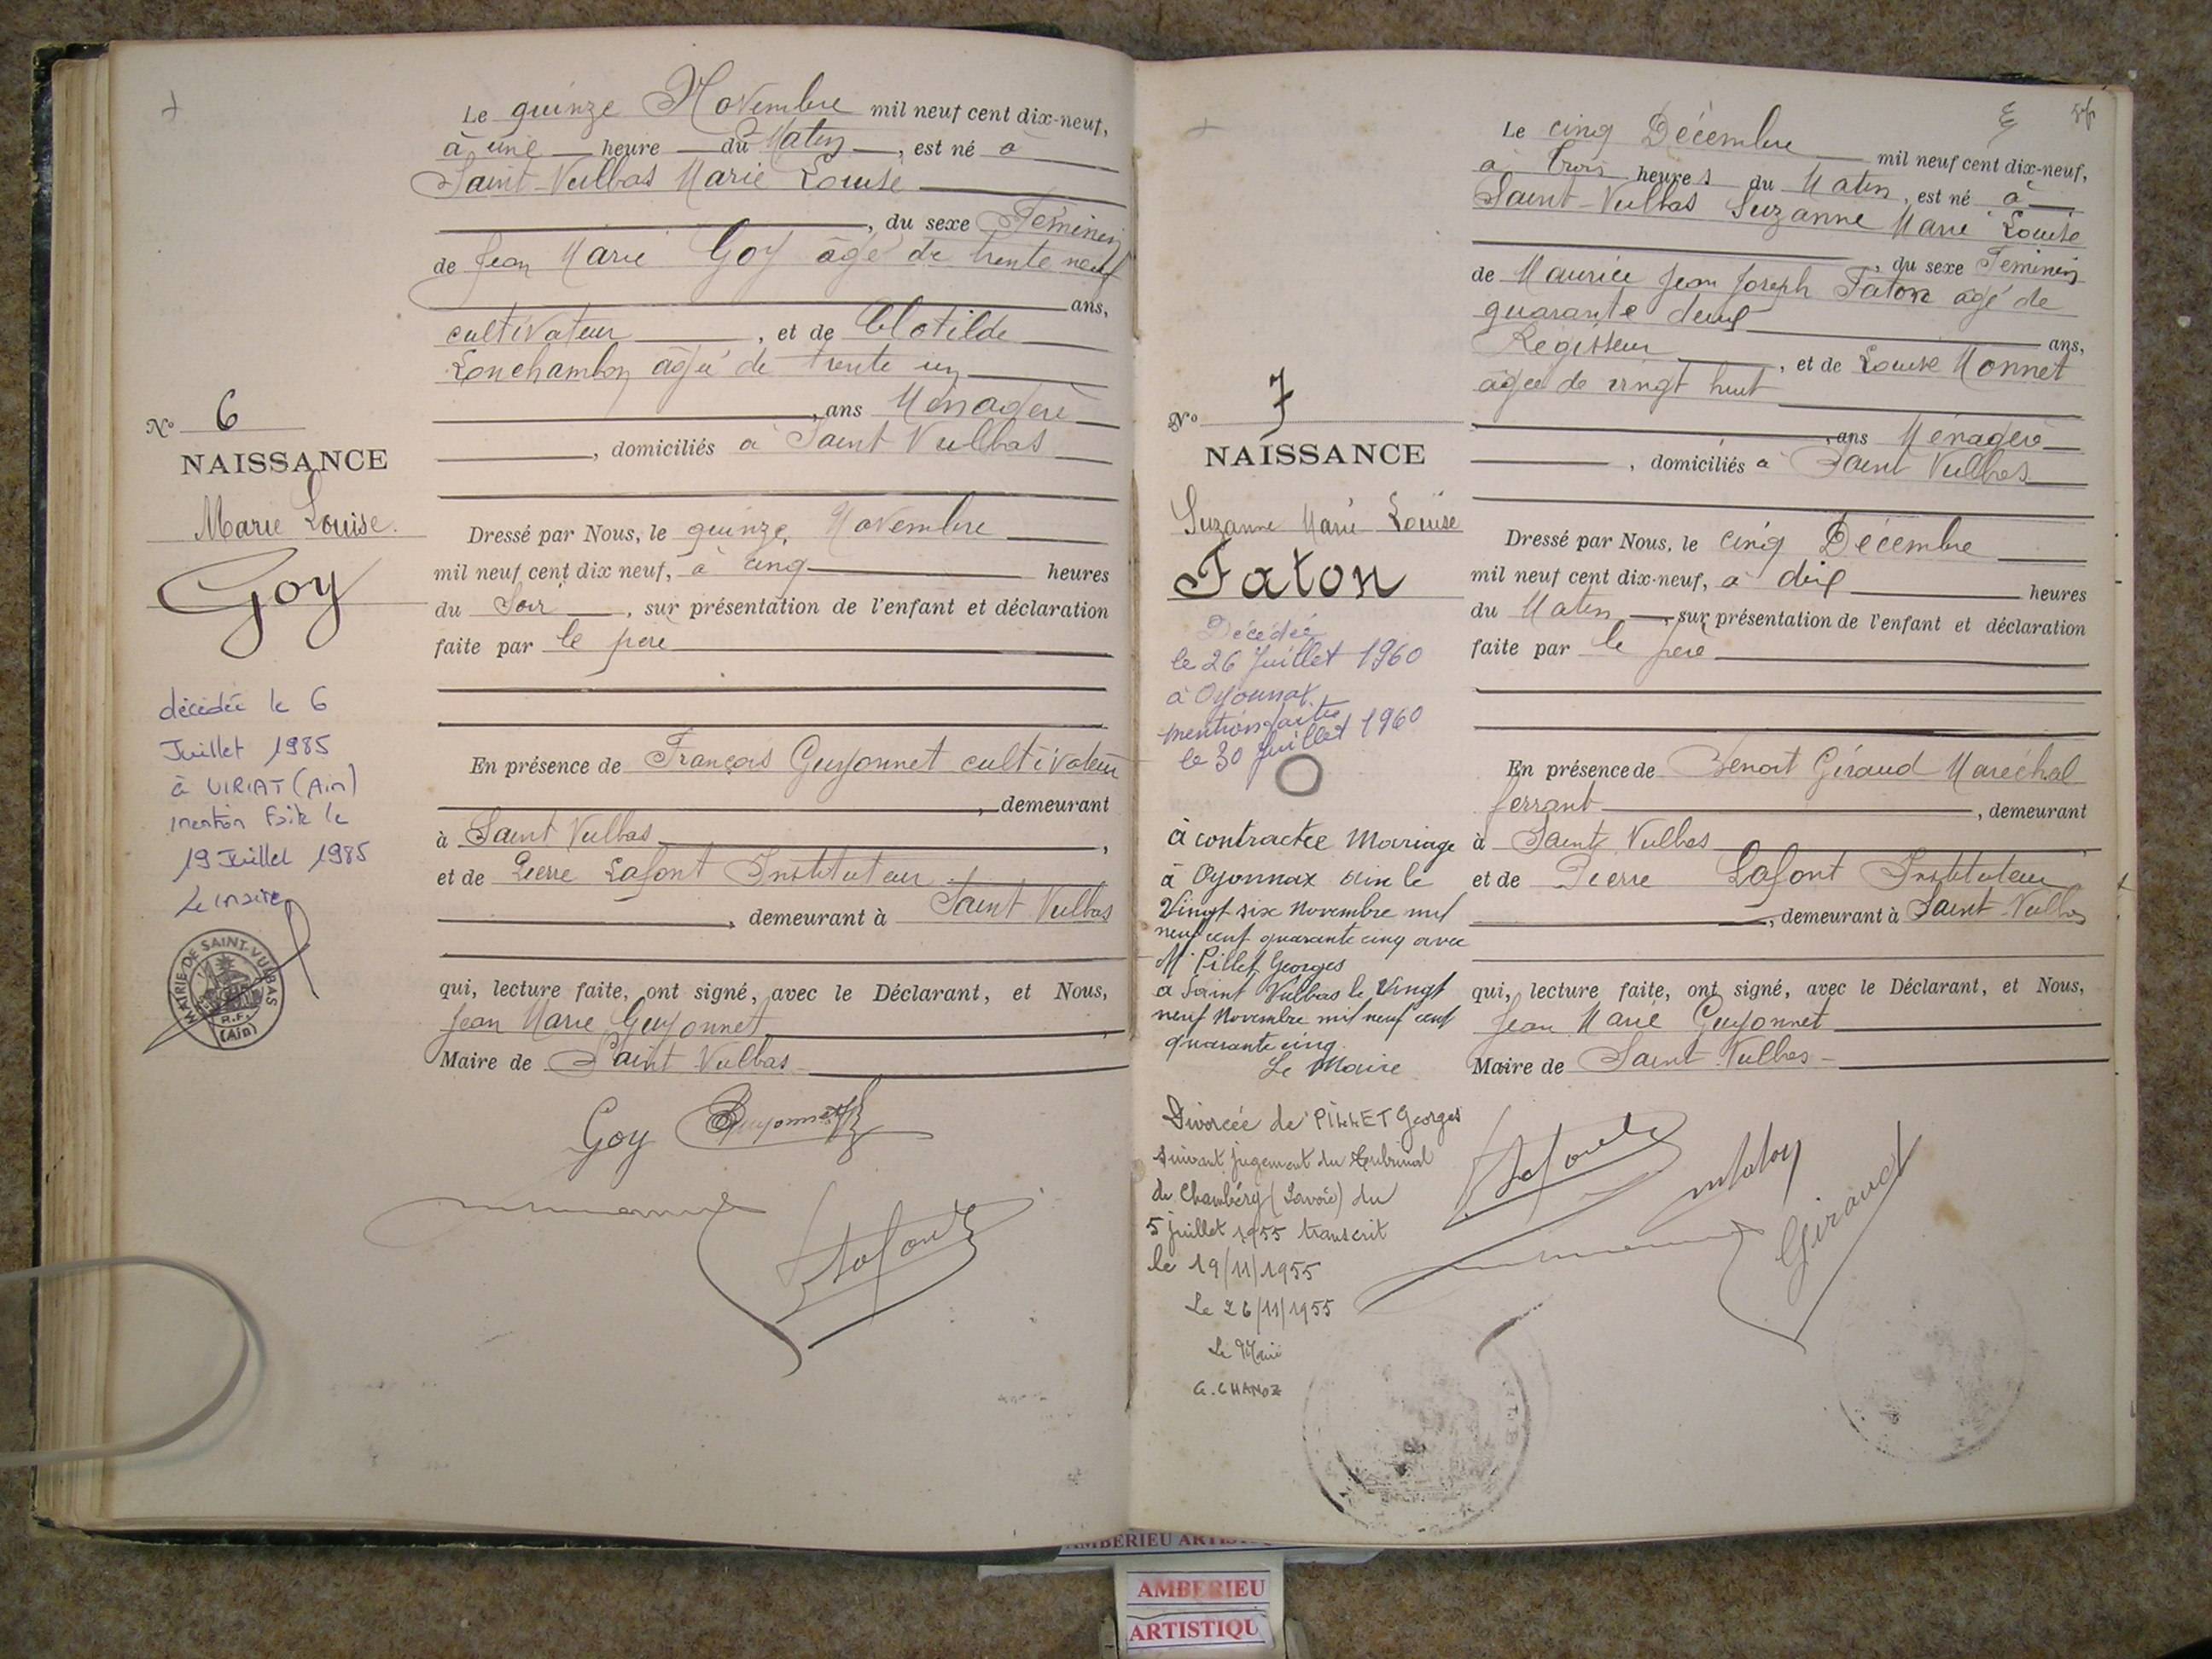 Le quinze Novembre mil neuf cent dix-neuf,
à une heure du Matin, est né à
Saint-Vulbas Marie Louise
, du sexe Féminin
de Jean Marie Goy âgé de trente neuf
ans,
cultivateur, et de Clotilde
Lonchambon âgée de trente un
, ans Ménagère
, domiciliés à Saint Vulbas
N° 6
NAISSANCE
Marie Louise.
Goy
décédée le 6
Juillet 1985
à VIRIAT (Ain)
mention faite le
19 Juillet 1985
Le maire
MAIRIE DE SAINT-VULBAS
R.F.
(Ain)
Dressé par Nous, le quinze Novembre
mil neuf cent dix neuf, à cinq heures
du Soir, sur présentation de l'enfant et déclaration
faite par le père
En présence de François Guyonnet cultivateur
, demeurant
à Saint Vulbas,
et de Pierre Lafont Instituteur
, demeurant à Saint Vulbas
qui, lecture faite, ont signé, avec le Déclarant, et Nous,
Jean Marie Guyonnet
Maire de Saint Vulbas
Goy Guyonnet
Lafont
Le cinq Décembre mil neuf cent dix-neuf,
à trois heures du Matin, est né à
Saint-Vulbas Suzanne Marie Louise
, du sexe Féminin
de Maurice Jean Joseph Faton âgé de
quarante deux ans,
Régisseur, et de Louise Monnet
âgée de vingt huit
, ans Ménagère
, domiciliés à Saint Vulbas
N° 7
NAISSANCE
Suzanne Marie Louise
Faton
Décédée
le 26 Juillet 1960
à Oyonnax.
mention faite
le 30 Juillet 1960
à contractée Mariage
à Oyonnax Ain le
Vingt six Novembre mil
neuf cent quarante cinq avec
Mr Pillet Georges
à Saint Vulbas le Vingt
neuf Novembre mil neuf cent
quarante cinq.
Le Maire
Divorcée de PILLET Georges
suivant jugement du tribunal
de Chambéry (Savoie) du
5 juillet 1955 transcrit
le 19/11/1955
Le 26/11/1955
Le Maire
G. CHANOZ
Dressé par Nous, le cinq Décembre
mil neuf cent dix-neuf, à dix heures
du Matin, sur présentation de l'enfant et déclaration
faite par le père
En présence de Benoit Giraud Maréchal
ferrant, demeurant
à Saint Vulbas
et de Pierre Lafont Instituteur
, demeurant à Saint-Vulbas
qui, lecture faite, ont signé, avec le Déclarant, et Nous,
Jean Marie Guyonnet
Maire de Saint-Vulbas
Lafont
Giraud
AMBERIEU
ARTISTIQU